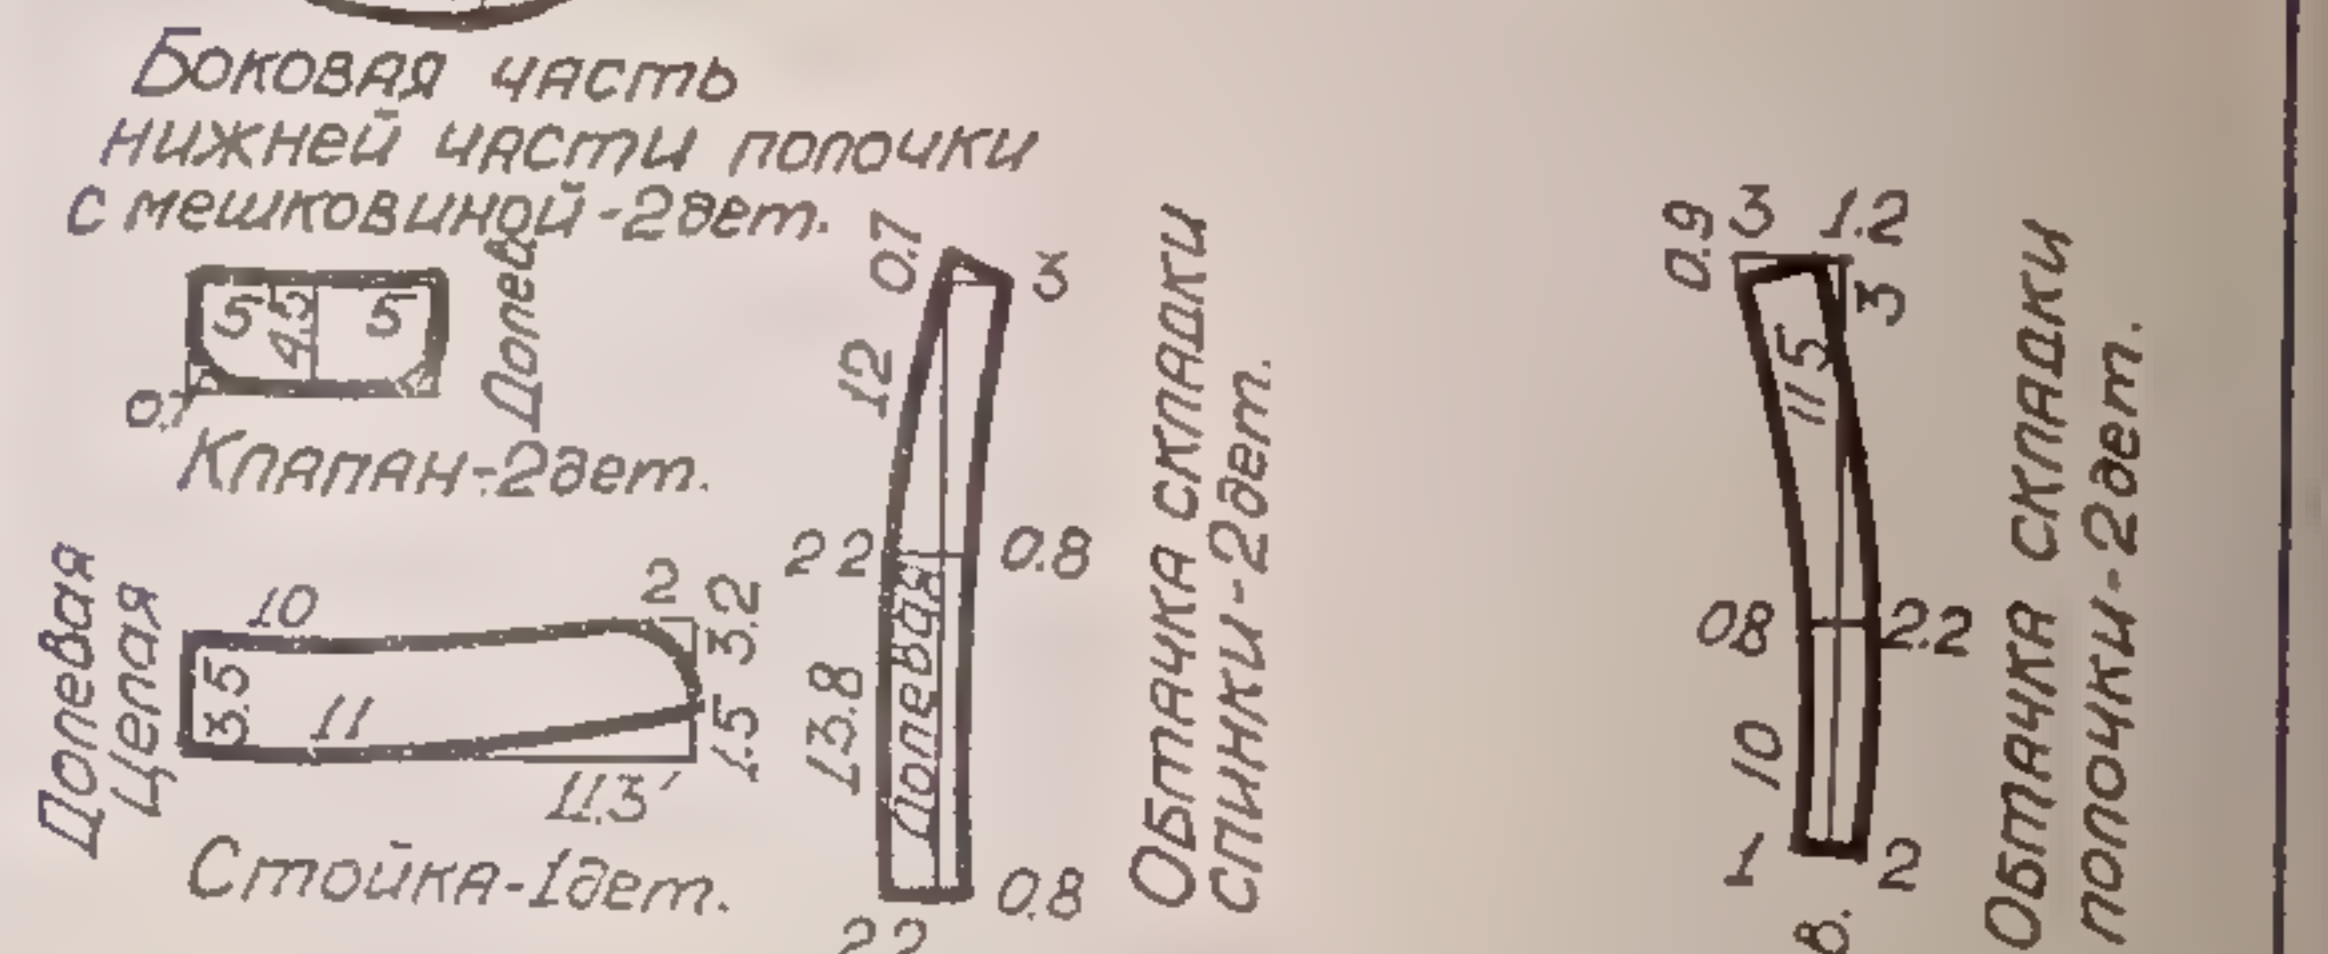 Боковая часть
нижней части полочки
с мешковиной-2дет.
5
4.5
5
0.7
Долев
Клапан-2дет.
Долевая
Целая
10
2
3.2
3.5
11
1.5
11.3
Стойка-1дет.
0.7
3
12
22
0.8
13.8
Долевая
0.8
22
Обтачка складки
спинки-2дет.
0.9
3
1.2
3
115
08
2.2
10
1
2
в.
Обтачка складки
полочки-2дет.